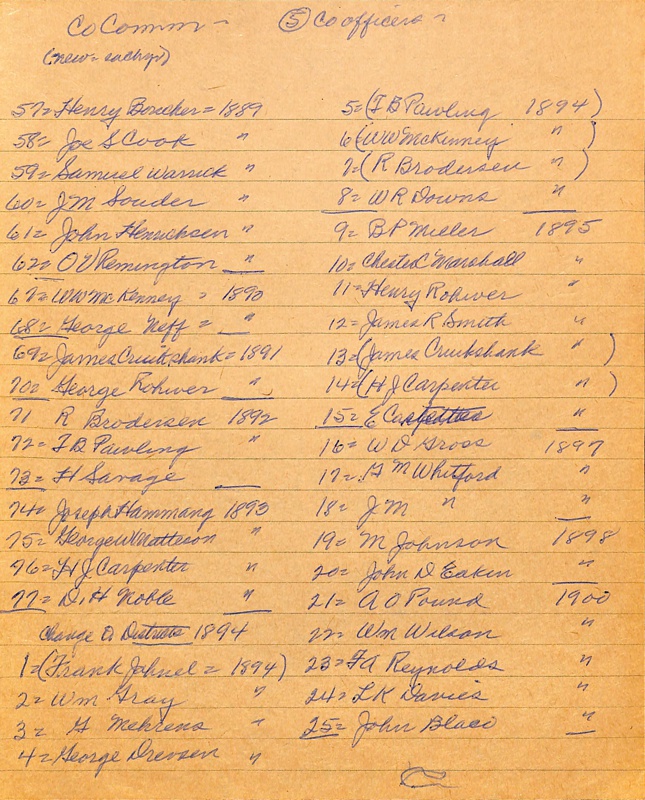 Co Comm - ⑤ Co officers -
(new = each yr)
57 = Henry Boucher = 1889
58 = Joe S Cook "
59 = Samuel Warrick "
60 = J M Souder "
61 = John Henricksen "
62 = O V Remington
67 = WW McKenney = 1890
68 = George Neff =
69 = James Cruickshank = 1891
70 = George Rohwer "
71 R Brodersen 1892
72 = F B Pawling "
73 = H Savage
74 = Joseph Hammang 1893
75 = George W Matteson "
76 = H J Carpenter "
77 = D. H Noble "
Change Districts 1894
1 = (Frank Jahnel = 1894)
2 = Wm Gray "
3 = G Mehrens "
4 = George Drevsen "
5 = (F B Pawling 1894)
6 (WW McKinney ")
7 = (R Brodersen ")
8 = W R Downs "
9 = B P Miller 1895
10 = Chester C Marshall "
11 = Henry Rohwer "
12 = James R Smith "
13 = (James Cruikshank ")
14 = (H J Carpenter ")
15 = E "
16 = W D Gross 1897
17 = G M Whitford "
18 = J M " "
19 = M Johnson 1898
20 = John D Eakin "
21 = A O Pound 1900
22 = Wm Wilson "
23 = F A Reynolds "
24 = L K Davies "
25 = John Blaco "